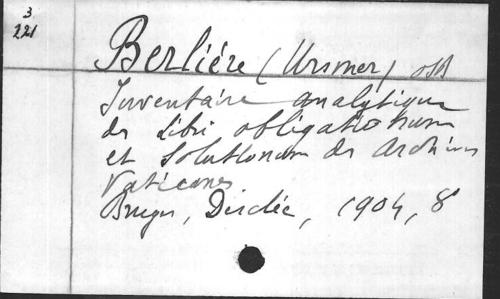 3
221
Berliére (Ursmer) osb
Inventaire analytique
des Libri obligationum
et Solutionum des Archives
Vaticanes
Bruges, Desclée, 1904, 8°